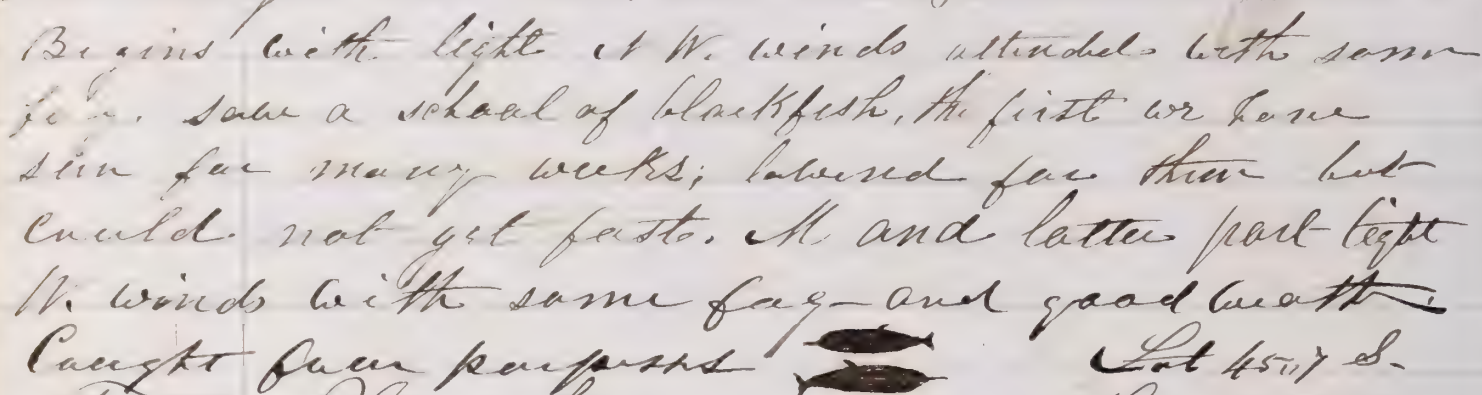 Begins with light N W. winds attended with some
fog. saw a school of blackfish, the first we have
seen for many weeks; lowered for them but
could not get fast. M and latter part light
W. winds with some fog and good weather.
Caught four porpoises Lat 45,,7 S.